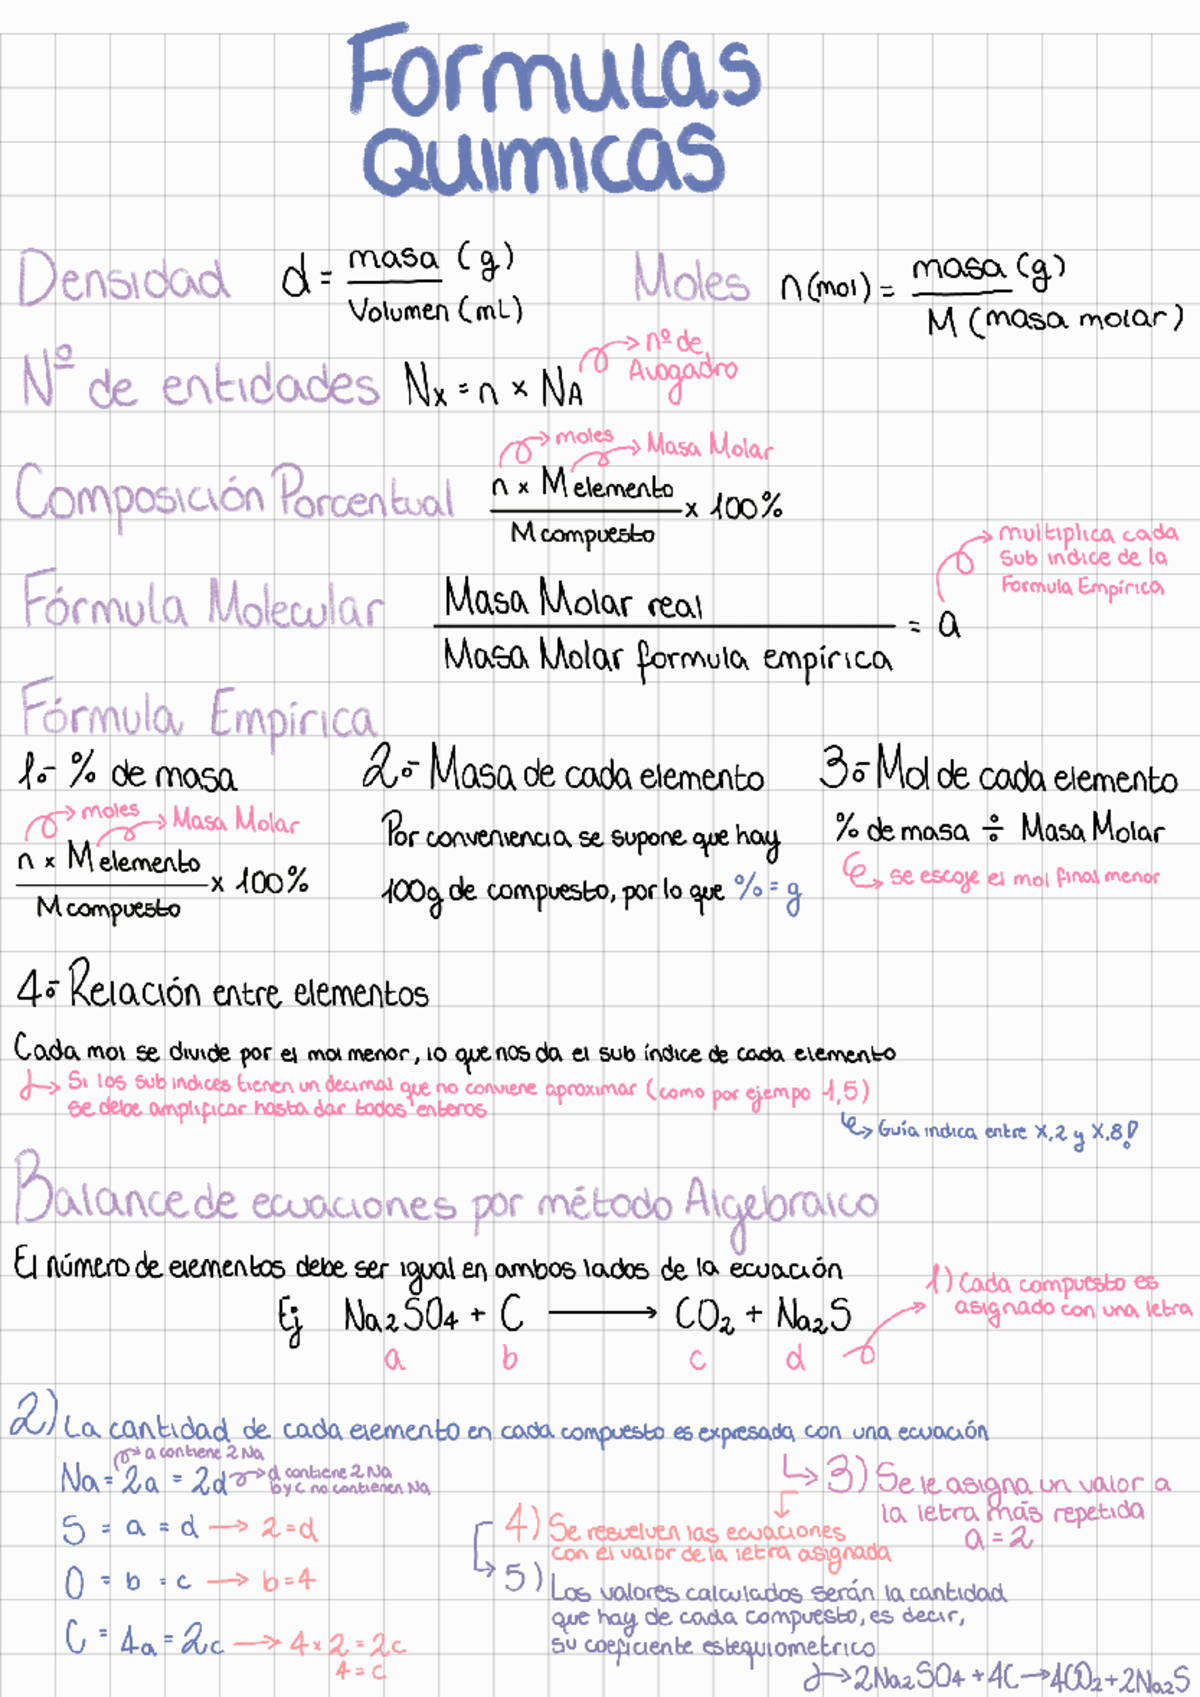 Formulas
Quimicas
Densidad d = masa (g) / Volumen (mL)
Moles n(mol) = masa (g) / M (masa molar)
Nº de entidades Nx = n × NA
nº de Avogadro
Composición Porcentual n × M elemento / M compuesto × 100%
moles Masa Molar
Fórmula Molecular Masa Molar real / Masa Molar formula empírica = a
multiplica cada
sub indice de la
Formula Empírica
Fórmula Empírica
1.- % de masa
moles Masa Molar
n × M elemento / M compuesto × 100%
2.- Masa de cada elemento
Por conveniencia se supone que hay
100g de compuesto, por lo que % = g
3.- Mol de cada elemento
% de masa ÷ Masa Molar
se escoje el mol final menor
4.- Relación entre elementos
Cada mol se divide por el mol menor, lo que nos da el sub índice de cada elemento
Si los sub indices tienen un decimal que no conviene aproximar (como por ejempo 1,5)
se debe amplificar hasta dar todos enteros
Guía indica entre X,2 y X,8!
Balance de ecuaciones por método Algebraico
El número de elementos debe ser igual en ambos lados de la ecuación
Ej Na2SO4 + C → CO2 + Na2S
a b c d
1) Cada compuesto es
asignado con una letra
2) La cantidad de cada elemento en cada compuesto es expresada con una ecuación
a contiene 2 Na
Na = 2a = 2d
d contiene 2 Na
b y c no contienen Na
S = a = d → 2 = d
O = b = c → b = 4
C = 4a = 2c → 4 × 2 = 2c
4 = c
3) Se le asigna un valor a
la letra más repetida
a = 2
4) Se resuelven las ecuaciones
con el valor de la letra asignada
5) Los valores calculados serán la cantidad
que hay de cada compuesto, es decir,
su coeficiente estequiometrico
→ 2Na2SO4 + 4C → 4CO2 + 2Na2S